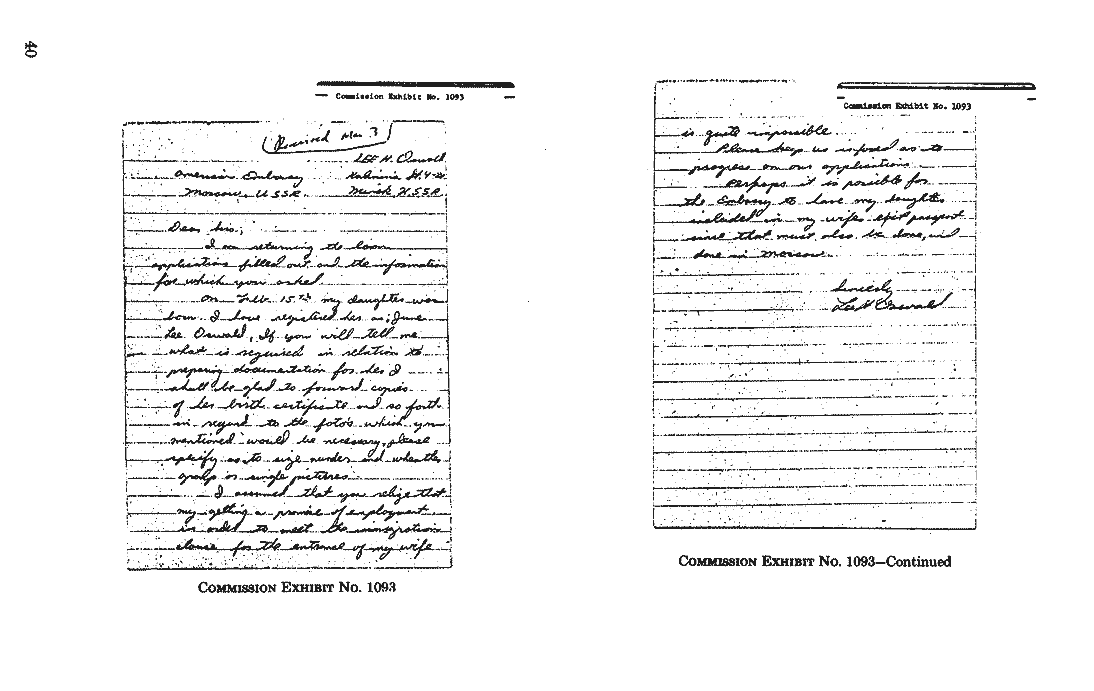 40
Commission Exhibit No. 1093
Received Mar 3
LEE H. Oswald
American Embassy Kalinina St. 4-24
Moscow, USSR. Minsk U.S.S.R.
Dear Sirs;
I am returning the loan
applications filled out and the information
for which you asked.
On Feb. 15th my daughter was
born. I have registered her as; June
Lee Oswald, If you will tell me
what is required in relation to
preparing documentation for her I
shall be glad to forward copies
of her birth certificate and so forth
in regard to the foto's which you
mentioned would be necessary, please
specify as to size number and whether
group or single pictures.
I assumed that you relize that
my getting a promise of employment
in order to meet the immigration
clause for the entrance of my wife
COMMISSION EXHIBIT No. 1093
Commission Exhibit No. 1093
is quite impossible.
Please keep us infored as to
progress on our applications.
Perhaps it is possible for
the Embassy to have my daughter
included in my wifes exit passport
since that must also be done, and
done in Moscow.
Sincerly
Lee H Oswald
COMMISSION EXHIBIT No. 1093—Continued